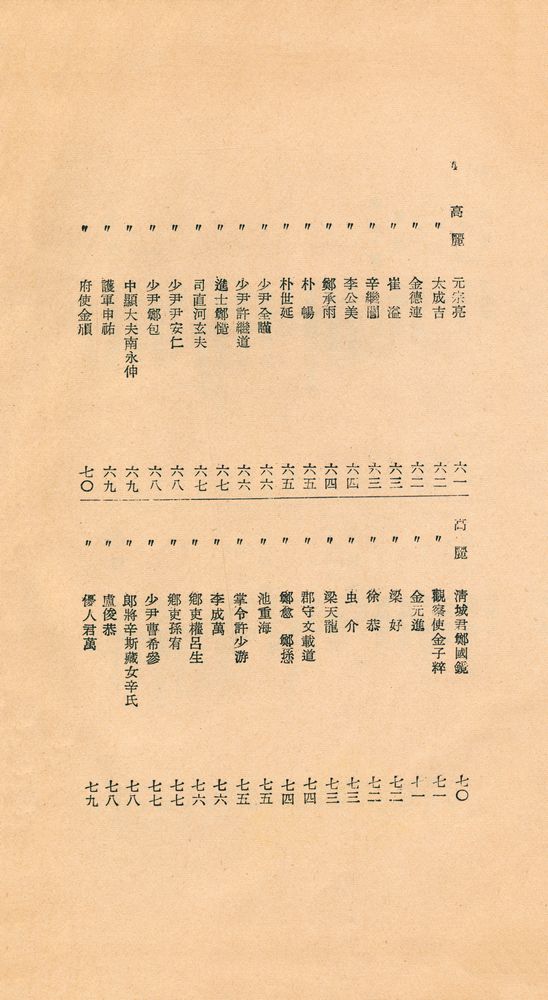 4
高麗 元宗亮 六一
〃 太成吉 六二
〃 金德連 六二
〃 崔溢 六三
〃 辛繼 六三
〃 李公美 六四
〃 鄭承雨 六四
〃 朴暢 六五
〃 朴世延 六五
〃 少尹全謹 六六
〃 少尹許繼道 六六
〃 進士鄭愷 六七
〃 司直河玄夫 六七
〃 少尹尹安仁 六八
〃 少尹鄭包 六八
〃 中顯大夫南永伸 六九
〃 護軍申祐 六九
〃 府使金 七〇
高麗 清城君鄭國鏡 七〇
〃 觀察使金子粹 七一
〃 金元進 十一
〃 梁好 七二
〃 徐恭 七二
〃 虫介 七三
〃 梁天龍 七三
〃 郡守文載道 七四
〃 鄭愈 鄭愻 七四
〃 池重海 七五
〃 掌令許少游 七五
〃 李成萬 七六
〃 鄉吏權呂生 七六
〃 鄉吏孫宥 七七
〃 少尹曹希參 七七
〃 郎將辛斯藏女辛氏 七八
〃 盧俊恭 七八
〃 優人君萬 七九